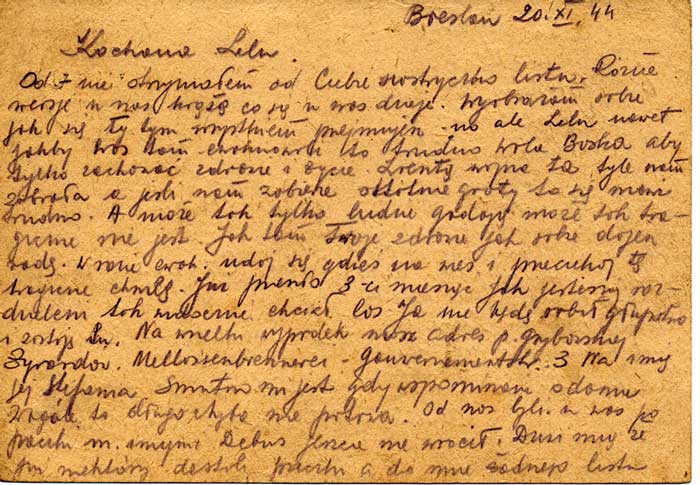 Breslau 20. XI. 44
Kochana Lelu.
Od 7 nie otrzymałem od Ciebie siostryczko listu. Różne
wersje u nas krążą co się u was dzieje. Wyobrażam sobie
jak się ty tym wszystkiem przejmujesz. no ale Lelu nawet
jakby was tam ewakuowali to trudno wola Boska aby
tylko zachować zdrowie i życie. wojna ta tyle nam
zabrała a jeśli nam zabierze ostatnie graty to się mówi
trudno. A może tak tylko ludzie gadają może tak tra-
gicznie nie jest. Jak tam Twoje zdrowie jak sobie dajesz
radę. W razie ewak. udaj się gdzieś na wieś i przeczekaj tę
tragiczną chwilę. Już prawie 3 ci miesiąc jak jesteśmy roz-
dzieleni tak właśnie chciał los Ja nie będę robił
i zostaję tu. Na wszelki wypadek masz adres p.
Żyrardów. - Gouvernement 3 Na imię
jej Stefania. Smutno mi jest gdy wspominam o domu
to długo chyba nie potrwa. Od nas byli u was po
paczki m. innymi Debus jeszcze nie wrócił. Dusi mię że
już niektórzy dostali paczki a do mnie żadnego listu